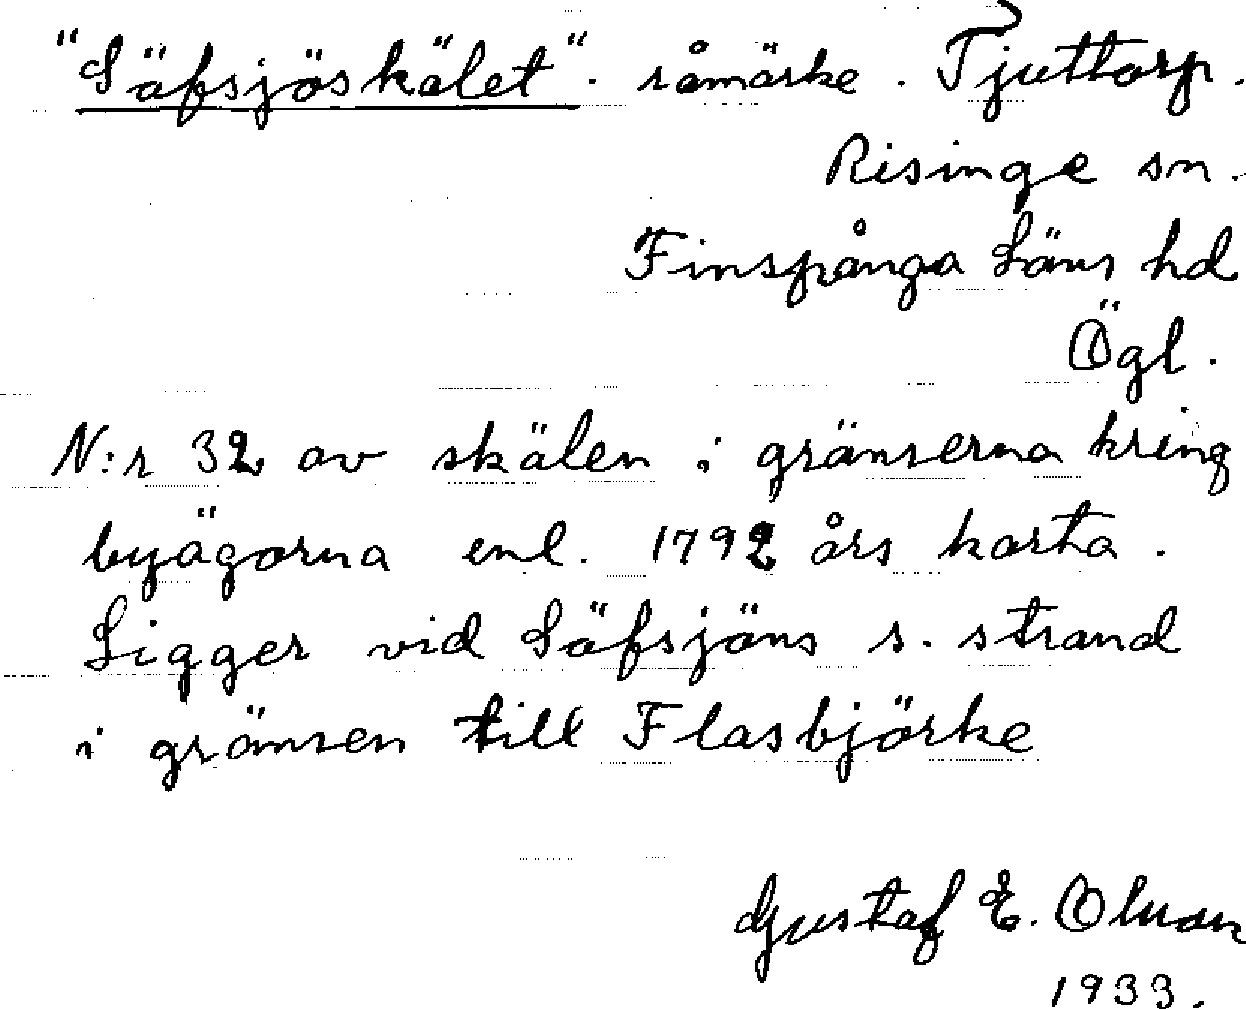 "Säfsjöskälet". råmärke. Tjuttorp.
Risinge sn.
Finspånga Läns hd
Ögl.
N:r 32 av skälen i gränserna kring
byägorna enl. 1792 års karta.
Ligger vid Säfsjöns s. strand
i gränsen till Flasbjörke
Gustaf E. Olsson
1933.